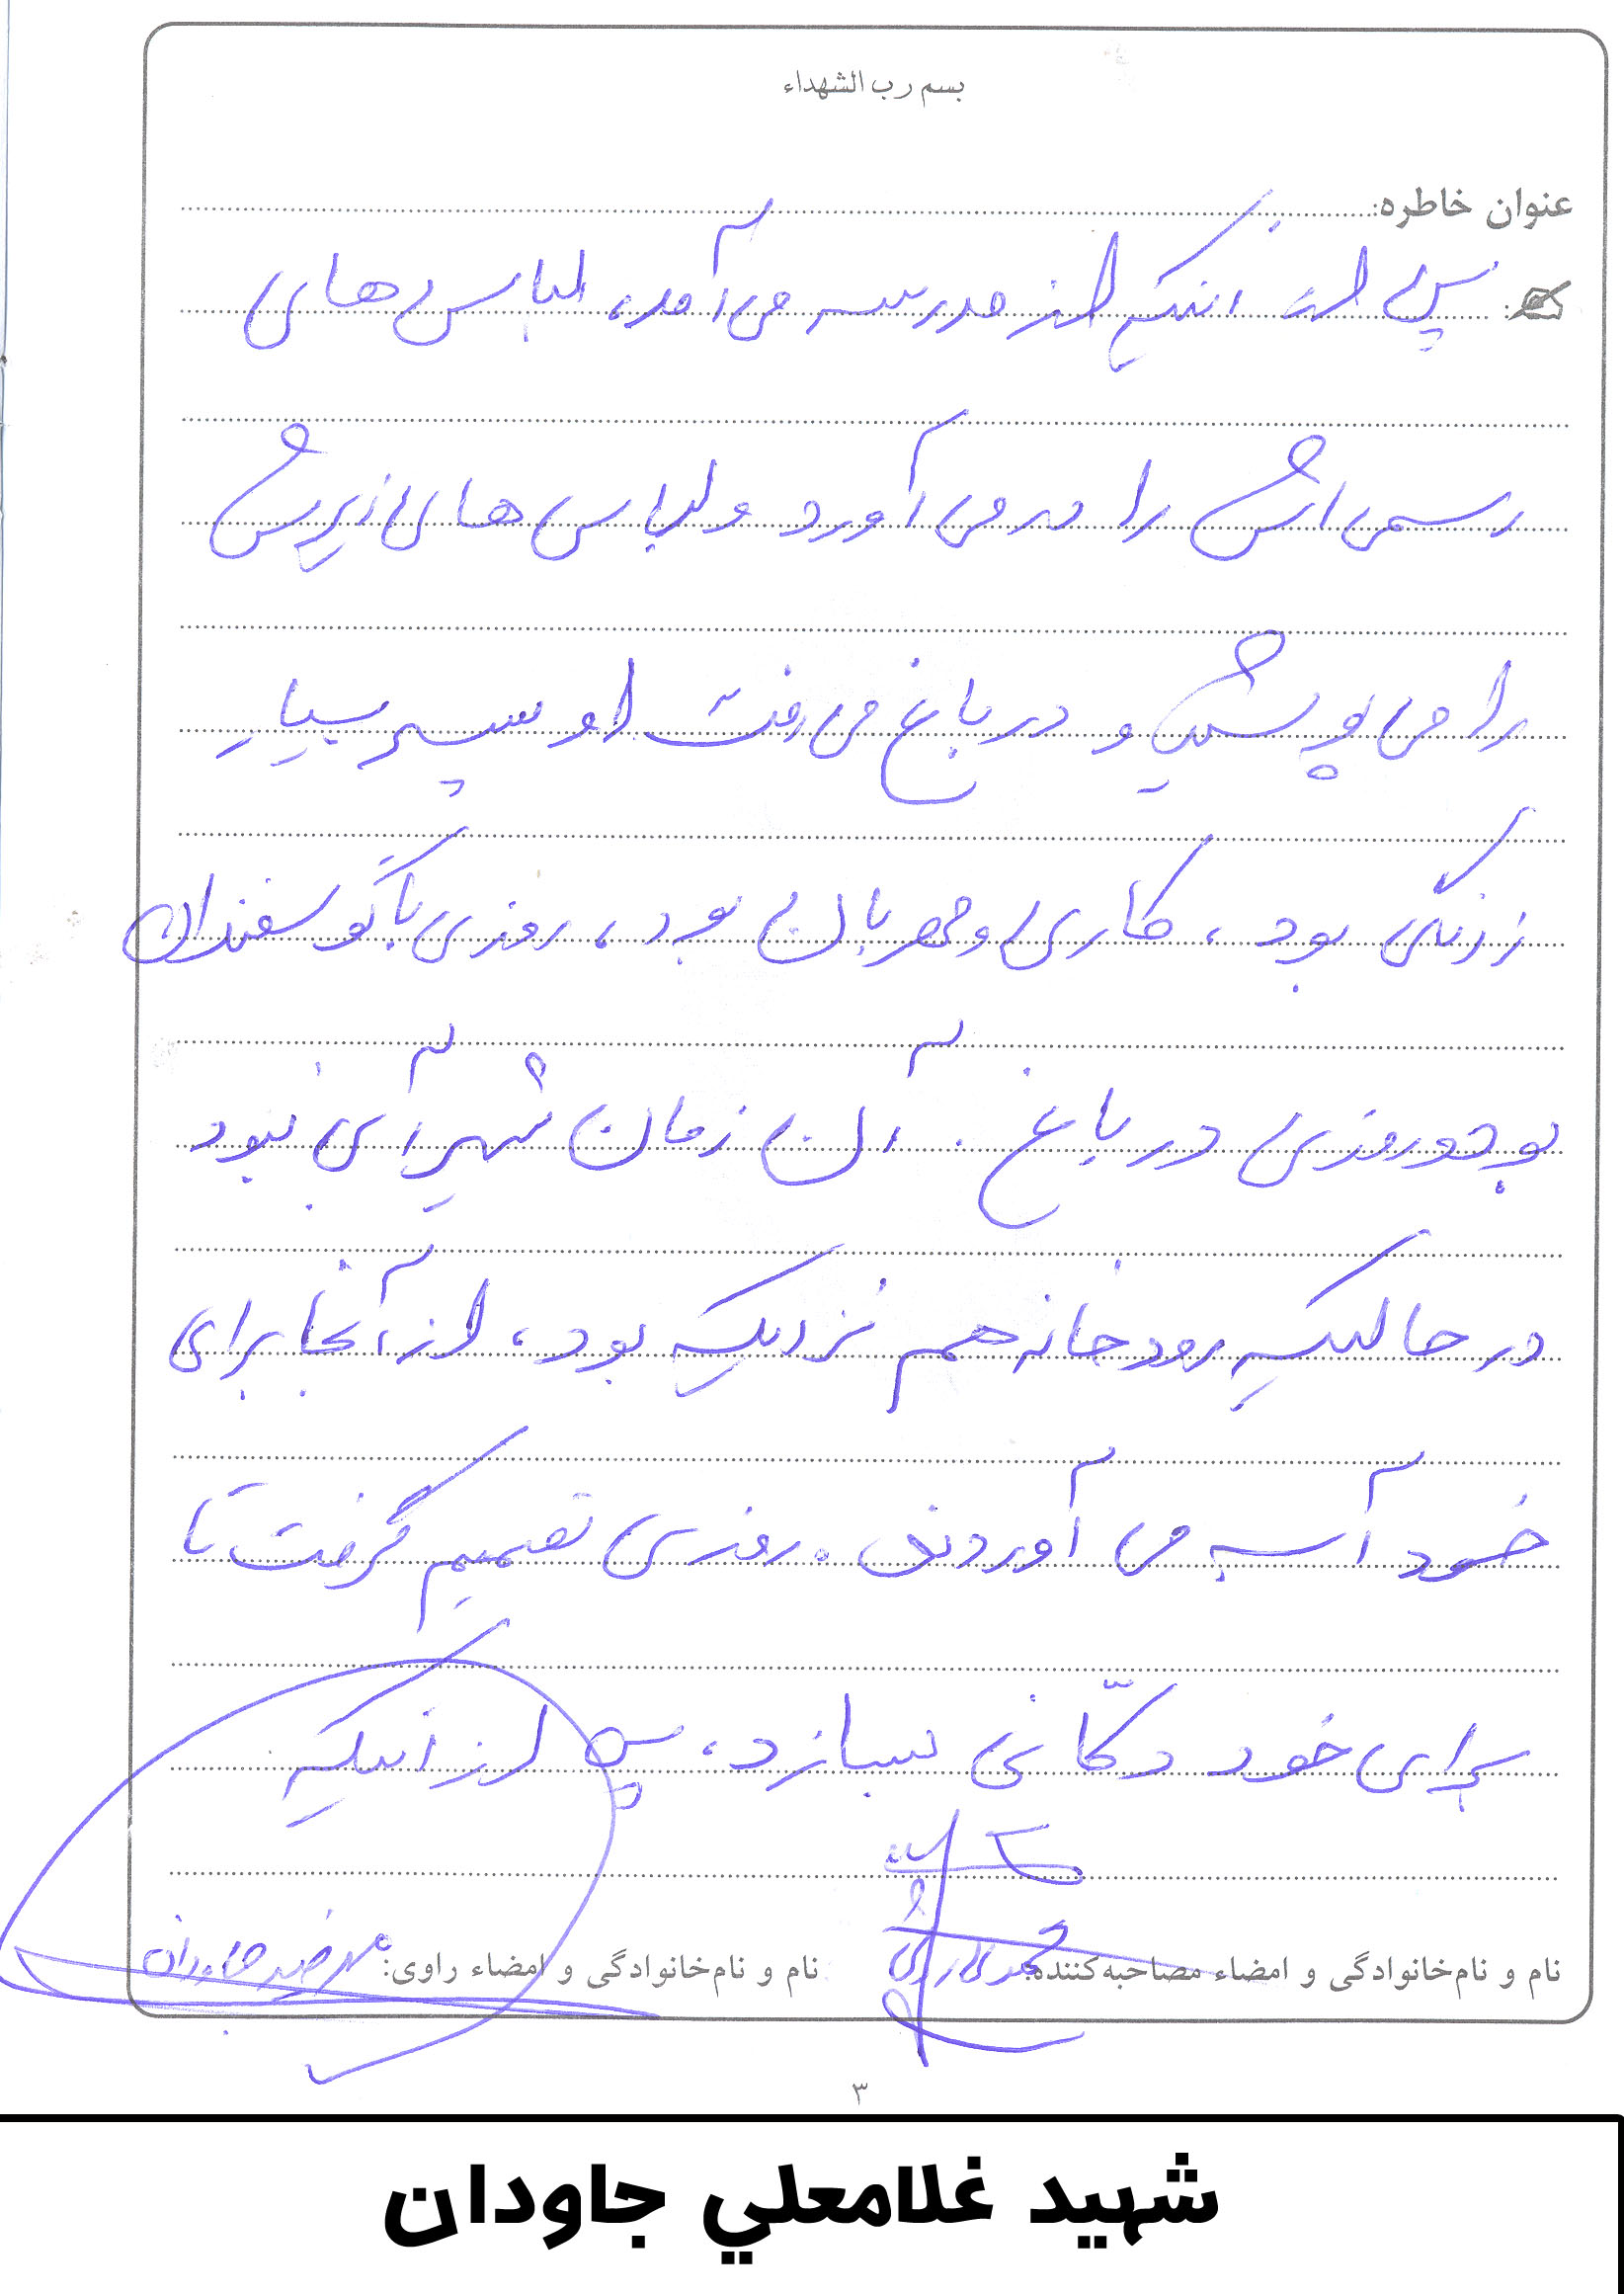 بسم رب الشهداء
عنوان خاطره:
پس از اینکه از مدرسه می آمد، لباس های
رسمی اش را در می آورد و لباس های زیرش
را می پوشید و در باغ می رفت او پسر بسیار
زرنگی بود، کاری و مهربان بود، روزی با گوسفندان
بود و روزی در باغ. آن زمان شیر آبی نبود
در حالیکه رودخانه هم نزدیک بود، از آنجا برای
خود آب می آوردند. روزی تصمیم گرفت تا
برای خود دکّانی بسازد، پس از اینکه
نام و نام‌خانوادگی و امضاء مصاحبه‌کننده:
نام و نام‌خانوادگی و امضاء راوی: جاودان
۳
شهید غلامعلي جاودان